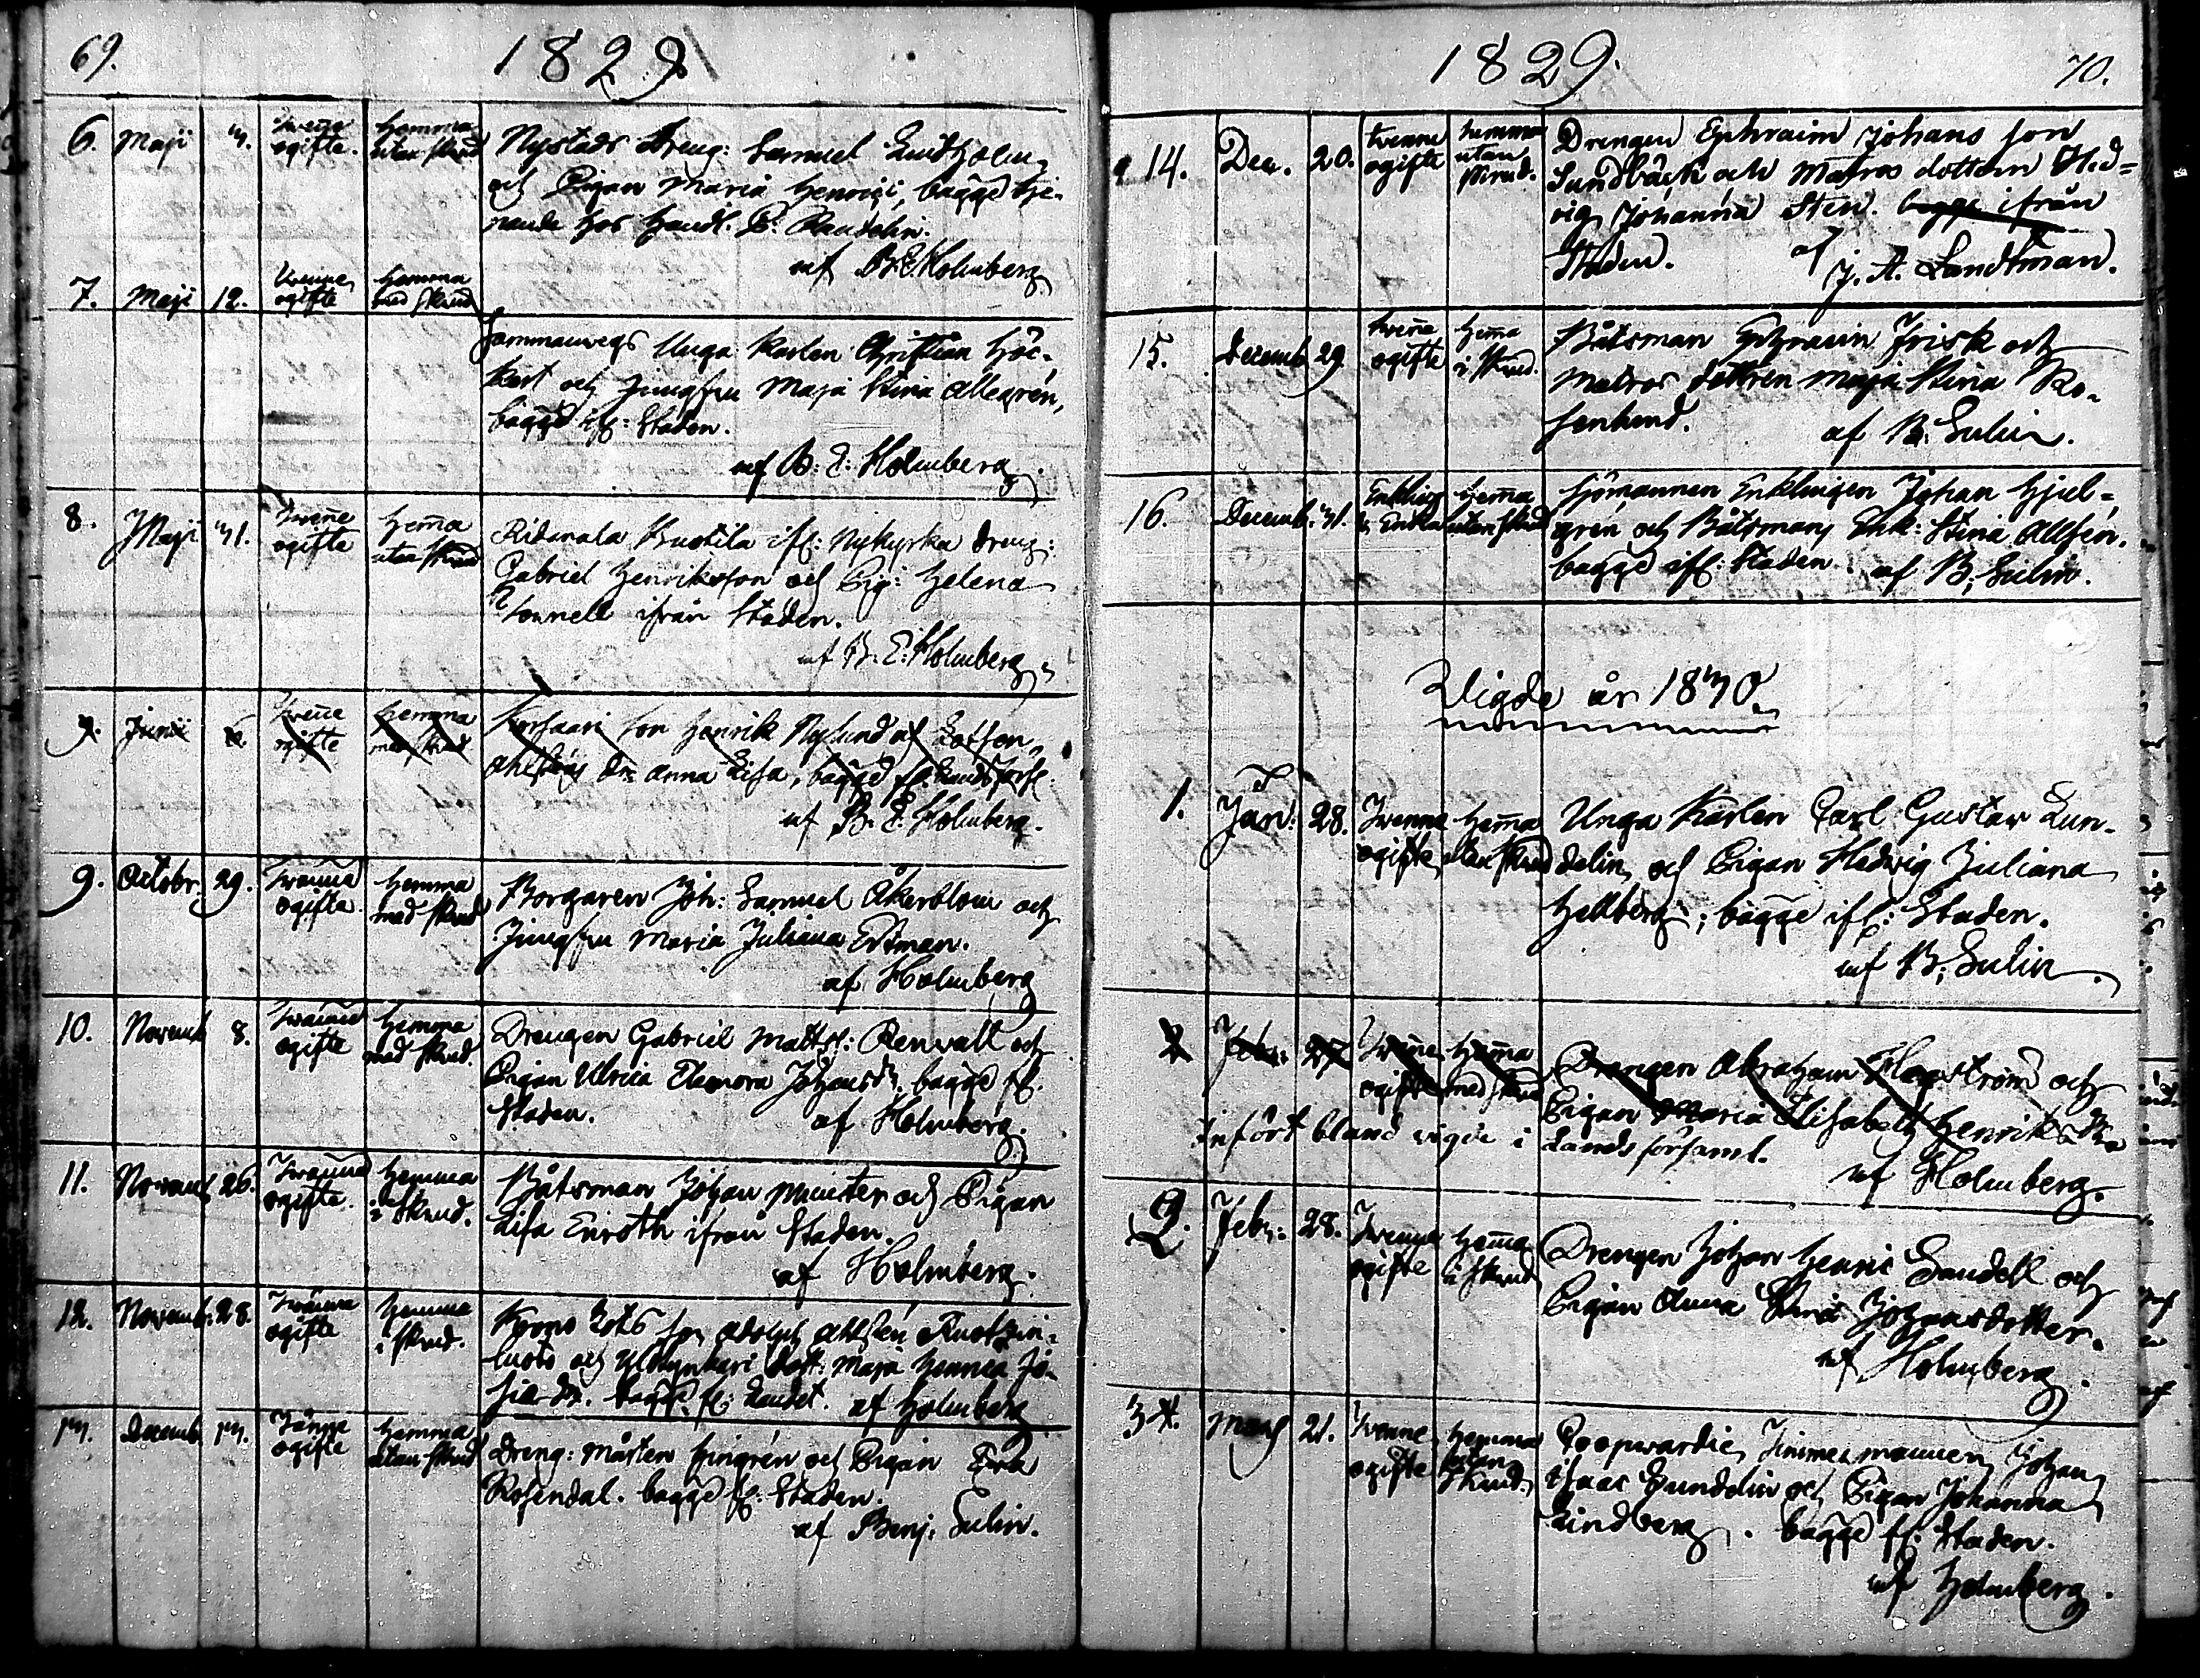 69.
1829
6. Maji 3. twenne ogifte. hemma utan skrud
Nystads Dreng: Samuel Lindholm
och Pigan Maria Henrici, bägge tje-
nande hos Handl. B. Randelin.
af B: E: Holmberg
7. Maji 12. twenne ogifte hemma med skrud
Sammanwegs Unga Karlen Christian Höc-
kert och Jungfru Maja Stina Allegrén,
bägge ifr: Staden.
af B: E: Holmberg
8. Maji 31. Twenne ogifte hemma utan skrud
Ridarala Kustila ifr: Nykyrka dreng:
Gabriel Henriksson och Pig: Helena
Tornell ifrån Staden.
af B. E: Holmberg
9. Junii 6. Twenne ogifte hemma med skrud
Korsaari son Henrik Nylund och
dr. Anna Lisa, bägge fr. Landsförs.
af B. E. Holmberg.
9. Octobr. 29. Twenne ogifta hemma med skrud
Borgaren Joh: Samuel Åkerblom och
Jungfru Maria Juliana Ersman.
af Holmberg
10. Novemb 8. Twenne ogifte hemma med skrud.
Drengen Gabriel Mattss: Renvall och
Pigan Ulrica Eleonora Johansdr. bägge fr.
Staden. af Holmberg.
11. Novemb 26. Twenne ogifte. hemma i skrud.
Båtsman Johan Munter och Pigan
Lisa Enroth ifrån Staden.
af Holmberg.
12. Novemb: 28. Twenne ogifte hemma i skrud.
Krono Lots son Adolph Allfién
och Yldkynkari dott: Maja Henrica Jo-
sia dr. bägge fr: Landet. af Holmberg
13. Decemb. 13. Tvänne ogifte hemma utan skrud
Dreng: Mårten Fingrén och Pigan Eva
Rosendal. bägge fr: Staden.
af Benj. Sulin.
1829.
70.
14. Dec. 20. twenne ogifte hemma utan skrud.
Drengen Ephraim Johans son
Sundbäck och Matros dottern Hed-
vig Johanna Sten. bägge ifrån
Staden. af J. A. Landtman.
15. Decemb 29. twenne ogifte hemma i skrud.
Båtsman Ephraim Frisk och
Matros dottren Maja Stina Ro-
senlund. af B: Sulin.
16. Decemb. 31. Enkling & Enka hemma utan skrud
Sjömannen Enklingen Johan Hjel-
grén och Båtsmans Enk: Stina Allfén.
bägge ifr: Staden. af B: Sulin.
Vigde år 1830.
1. Jan: 28. Twenne ogifte hemma utan skrud
Unga Karlen Carl Gustav Lun-
delin och Pigan Hedwig Juliana
Hellberg; bägge ifr: Staden.
af B: Sulin.
2 Febr: 27 Twenne ogifte hemma med skrud
Drengen Abraham Hagström och
Pigan Maria Elisabeth Henriksdr
Infört bland vigde i Landsförsaml.
af Holmberg.
2. Febr: 28. Twenne ogifte hemma i skrud
Drengen Johan Henric Sandell och
Pigan Anna Stina Johansdotter.
af Holmberg.
3 4. Mars 21. twenne ogifte hemma utan skrud.
Coopvardie Timmermannen Johan
Isaac Gundelin och Pigan Johanna
Lindberg. bägge fr: Staden.
af Holmberg.